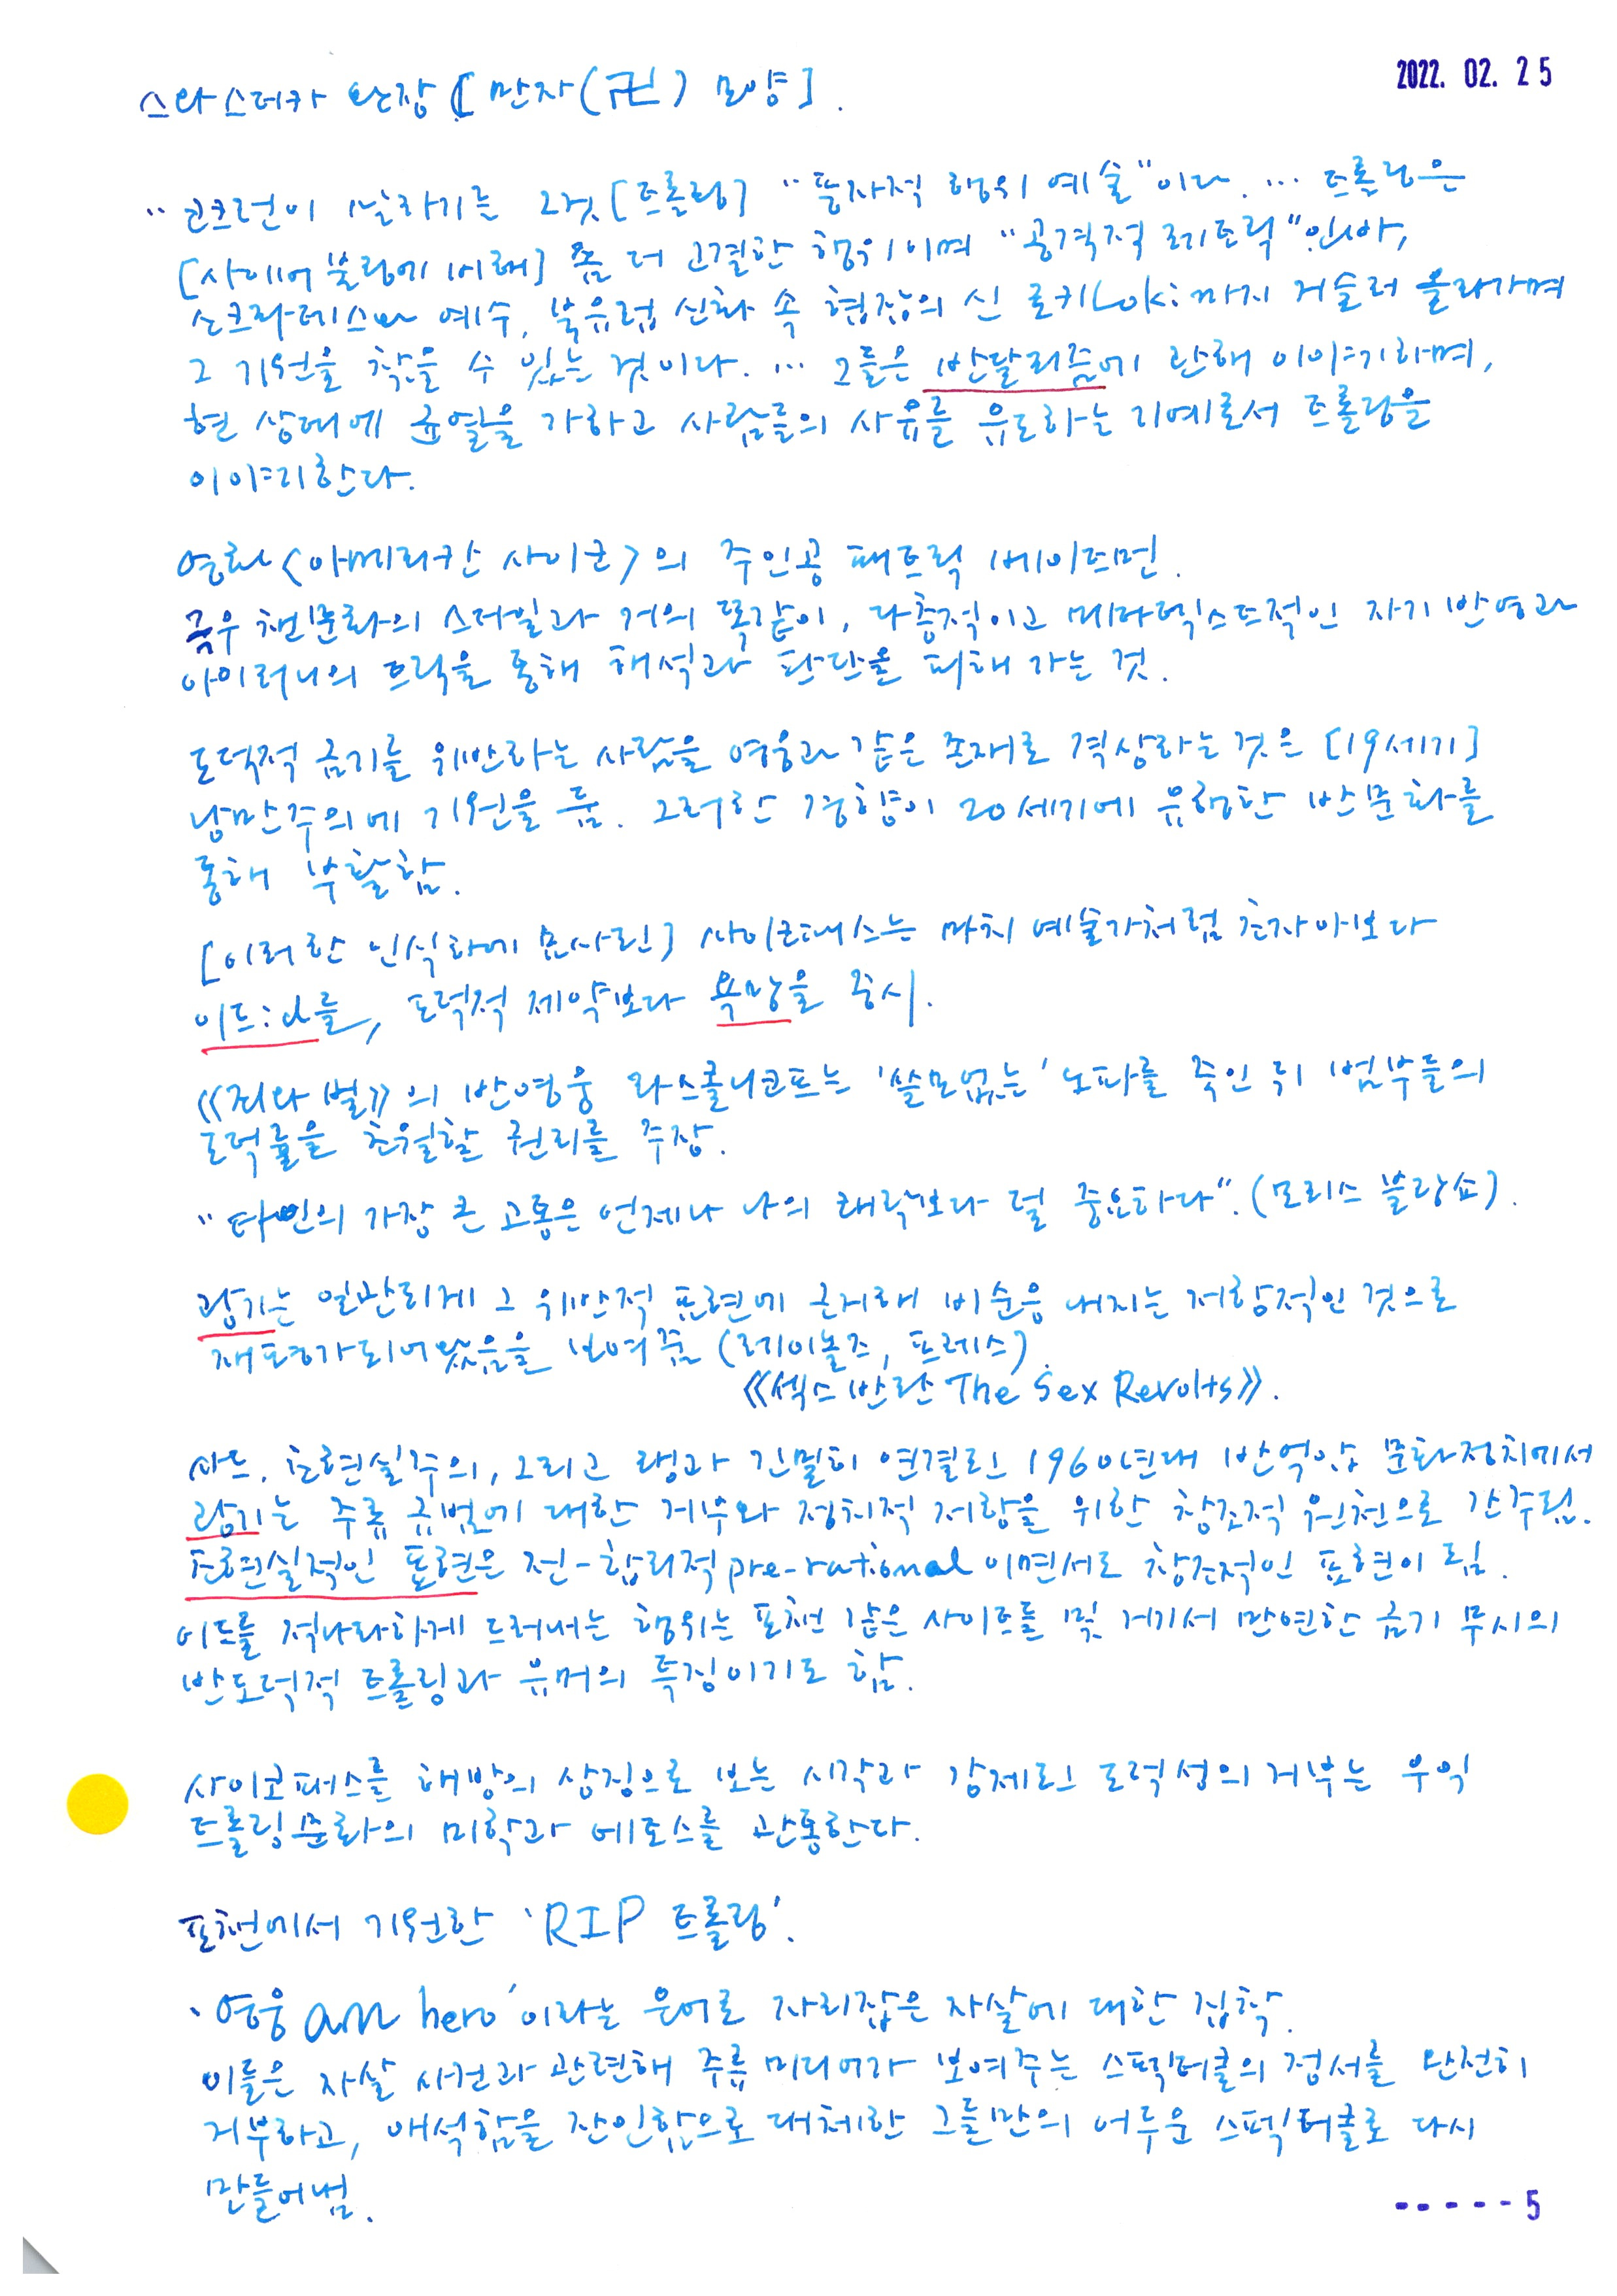 2022. 02. 25
스와스티카 완장 [만자(卍) 모양].
"코크런이 말하기를 그것[트롤링] "풍자적 행위 예술"이다. … 트롤링은
[사이버 불링에 비해] 좀 더 고결한 행위이며 "공격적 레토릭"인바,
소크라테스와 예수, 북유럽 신화 속 현장의 신 로키Loki까지 거슬러 올라가며
그 기원을 찾을 수 있는 것이다. … 그들은 반달리즘에 관해 이야기하며,
현 상태에 균열을 가하고 사람들의 사유를 유도하는 기예로서 트롤링을
이야기한다.
영화 <아메리칸 사이코>의 주인공 패트릭 베이트먼.
극우 챈문화의 스타일과 거의 똑같이, 다층적이고 메타텍스트적인 자기 반영과
아이러니의 트릭을 통해 해석과 판단을 피해 가는 것.
도덕적 금기를 위반하는 사람을 영웅과 같은 존재로 격상하는 것은 [19세기]
낭만주의에 기원을 둠. 그러한 경향이 20세기에 유행한 반문화를
통해 부활함.
[이러한 인식하에 묘사된] 사이코패스는 마치 예술가처럼 초자아보다
이드id를, 도덕적 제약보다 욕망을 중시.
《죄와 벌》의 반영웅 라스콜니코프는 '쓸모없는' 노파를 죽인 뒤 범부들의
도덕률을 초월할 권리를 주장.
"타인의 가장 큰 고통은 언제나 나의 쾌락보다 덜 중요하다". (모리스 블랑쇼).
광기는 일관되게 그 위반적 표현에 근거해 비순응 내지는 저항적인 것으로
재평가되어왔음을 보여줌 (레이놀즈, 프레스).
《섹스 반란 The Sex Revolts》.
사드, 초현실주의, 그리고 랭과 긴밀히 연결된 1960년대 반억압 문화정치에서
광기는 주류 규범에 대한 거부와 정치적 저항을 위한 창조적 원천으로 간주됨.
초현실적인 표현은 전-합리적pre-rational이면서도 창조적인 표현이 됨.
이드를 적나라하게 드러내는 행위는 포챈 같은 사이트들 및 거기서 만연한 금기 무시의
반도덕적 트롤링과 유머의 특징이기도 함.
사이코패스를 해방의 상징으로 보는 시각과 강제된 도덕성의 거부는 우익
트롤링문화의 미학과 에토스를 관통한다.
포챈에서 기원한 'RIP 트롤링'.
'영웅 an hero'이라는 은어로 자리잡은 자살에 대한 집착.
이들은 자살 사건과 관련해 주류 미디어가 보여주는 스펙터클의 정서를 완전히
거부하고, 애석함을 잔인함으로 대체한 그들만의 어두운 스펙터클로 다시
만들어냄.
-----5